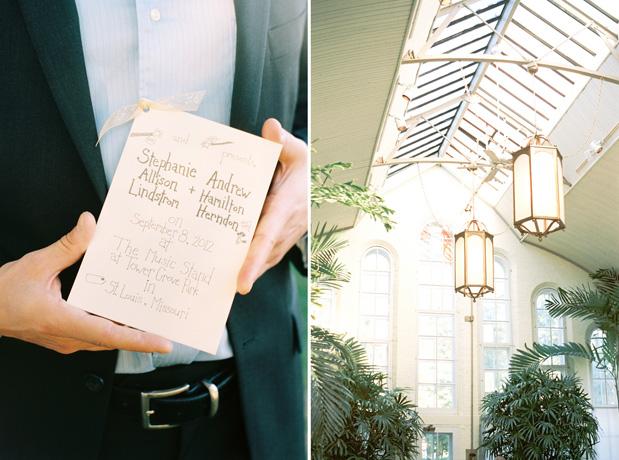 and
presents
Stephanie Andrew
Allison + Hamilton
Lindstrom Herndon
on
September 8, 2012
at
The Music Stand
at Tower Grove Park
in
St. Louis, Missouri